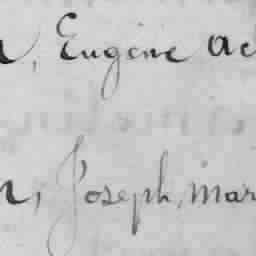 , Eugène
, Joseph, Mar